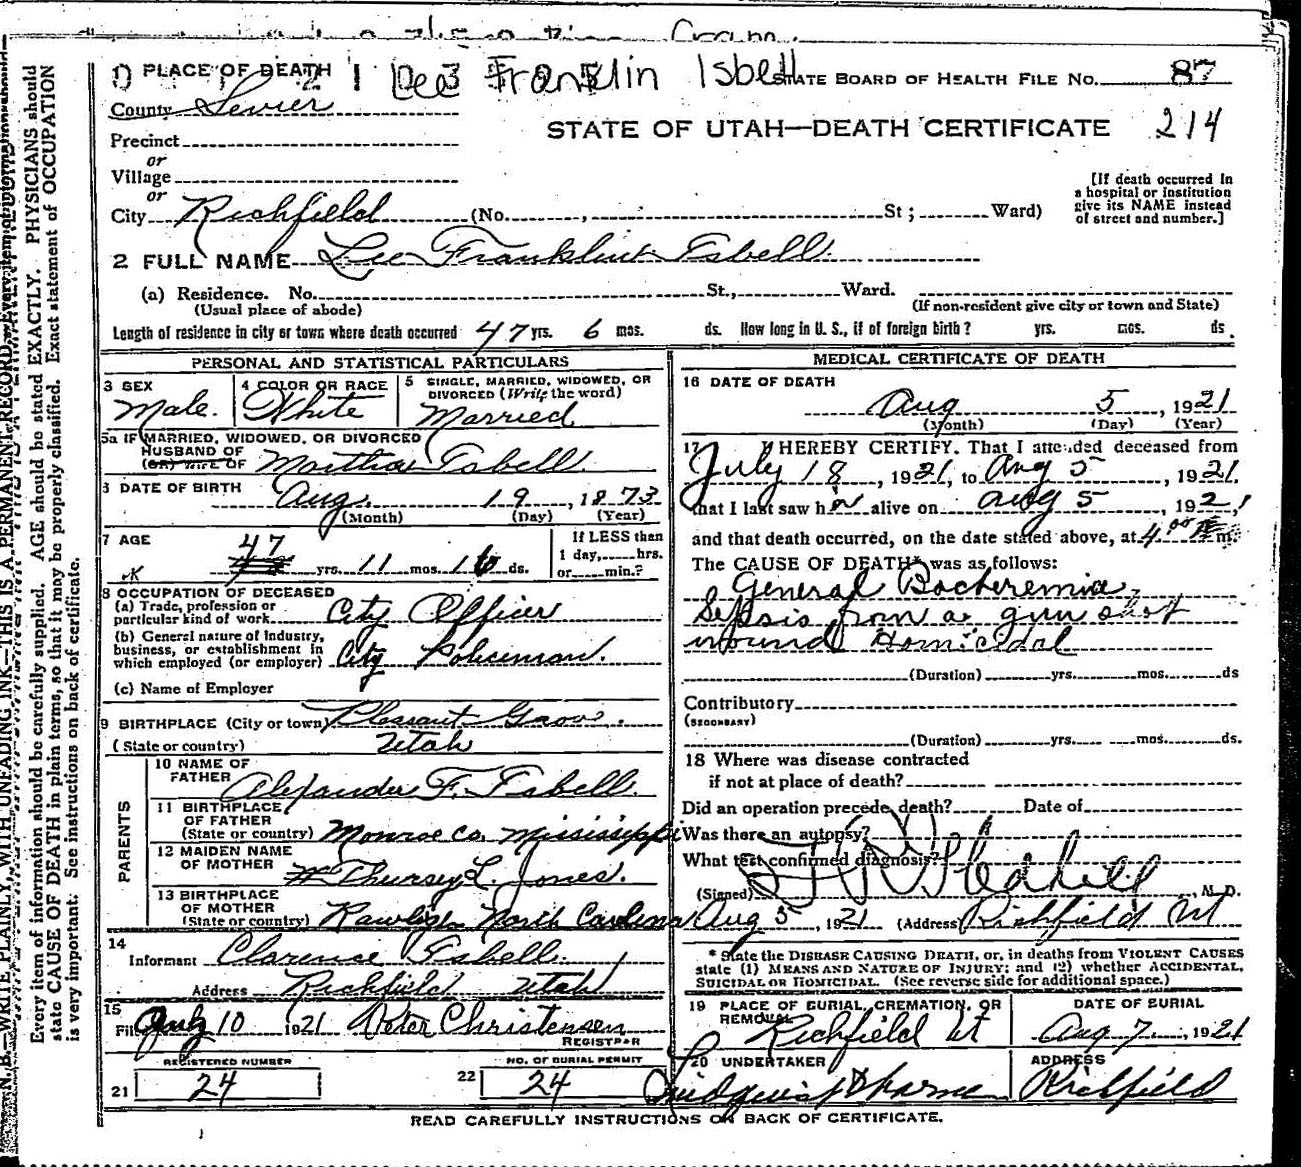 PLACE OF DEATH
Lee Franklin Isbell
STATE BOARD OF HEALTH FILE NO. 87
County Sevier
STATE OF UTAH—DEATH CERTIFICATE 214
Precinct
or
Village
or
City Richfield (No. , St; Ward)
[If death occurred in
a hospital or institution
give its NAME instead
of street and number.]
2 FULL NAME Lee Franklin Isbell
(a) Residence. No. St., Ward.
(Usual place of abode) (If non-resident give city or town and State)
Length of residence in city or town where death occurred 47 yrs. 6 mos. ds. How long in U. S., if of foreign birth? yrs. mos. ds.
PERSONAL AND STATISTICAL PARTICULARS
3 SEX
Male.
4 COLOR OR RACE
White
5 SINGLE, MARRIED, WIDOWED, OR
DIVORCED (Write the word)
Married
5a IF MARRIED, WIDOWED, OR DIVORCED
HUSBAND OF
(OR) WIFE OF Martha Isbell
6 DATE OF BIRTH Aug. 19, 1873
(Month) (Day) (Year)
7 AGE
47 yrs. 11 mos. 16 ds.
If LESS than
1 day, hrs.
or min.?
8 OCCUPATION OF DECEASED
(a) Trade, profession or
particular kind of work City Officer
(b) General nature of industry,
business, or establishment in
which employed (or employer) City Policeman.
(c) Name of Employer
9 BIRTHPLACE (City or town) Pleasant Grove.
(State or country) Utah
PARENTS
10 NAME OF
FATHER Alexander F. Isbell.
11 BIRTHPLACE
OF FATHER
(State or country) Monroe Co. Mississippi
12 MAIDEN NAME
OF MOTHER Thursey L. Jones.
13 BIRTHPLACE
OF MOTHER
(State or country) Rawligh North Carolina
14
Informant Clarence Isbell.
Address Richfield Utah
15
Filed 10 1921 Peter Christensen
REGISTRAR
REGISTERED NUMBER
21 24
NO. OF BURIAL PERMIT
22 24
MEDICAL CERTIFICATE OF DEATH
16 DATE OF DEATH
Aug 5, 1921
(Month) (Day) (Year)
17 I HEREBY CERTIFY. That I attended deceased from
July 18, 1921, to Aug 5, 1921.
that I last saw him alive on Aug 5, 1921,
and that death occurred, on the date stated above, at 4 00 m.
The CAUSE OF DEATH* was as follows:
General Bacteremia,
Sepsis from a gun shot
wound Homicidal
(Duration) yrs. mos. ds
Contributory
(SECONDARY)
(Duration) yrs. mos. ds.
18 Where was disease contracted
if not at place of death?
Did an operation precede death? Date of
Was there an autopsy?
What test confirmed diagnosis?
(Signed) , M. D.
Aug 5, 1921 (Address) Richfield Ut
* State the DISEASE CAUSING DEATH, or, in deaths from VIOLENT CAUSES
state (1) MEANS AND NATURE OF INJURY; and (2) whether ACCIDENTAL,
SUICIDAL OR HOMICIDAL. (See reverse side for additional space.)
19 PLACE OF BURIAL, CREMATION, OR
REMOVAL Richfield Ut
DATE OF BURIAL
Aug 7, 1921
20 UNDERTAKER
ADDRESS
Richfield
READ CAREFULLY INSTRUCTIONS ON BACK OF CERTIFICATE.
N. B.—WRITE PLAINLY, WITH UNFADING INK—THIS IS A PERMANENT RECORD.
Every item of information should be carefully supplied. AGE should be stated EXACTLY. PHYSICIANS should
state CAUSE OF DEATH in plain terms, so that it may be properly classified. Exact statement of OCCUPATION
is very important. See instructions on back of certificate.